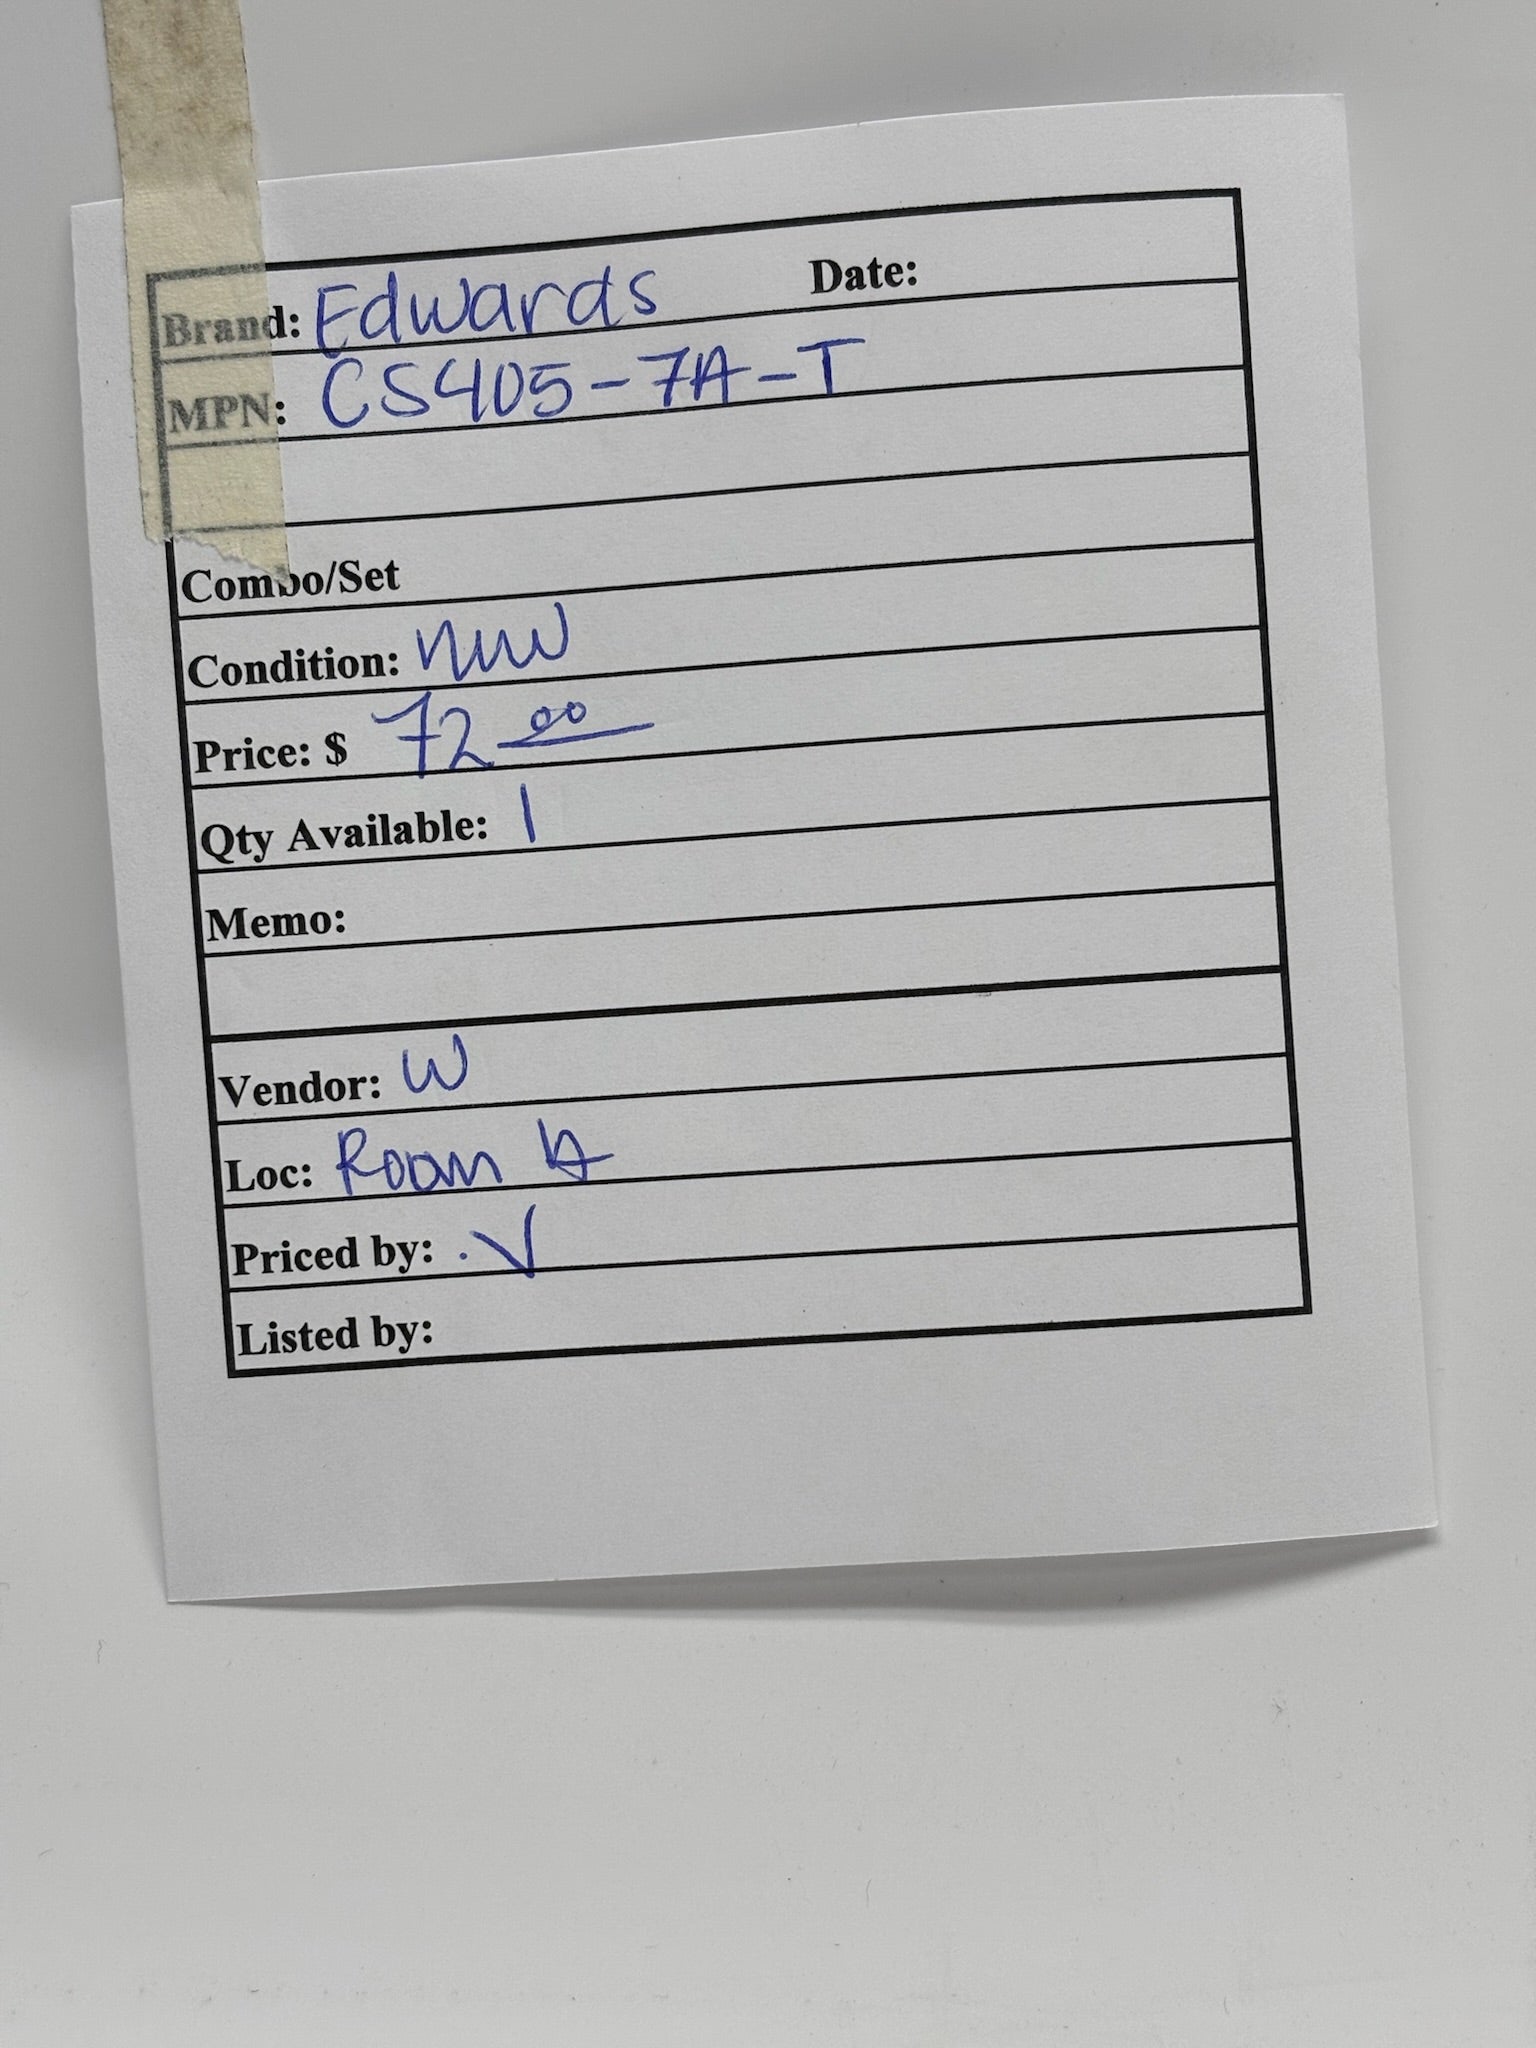 Brand: Edwards Date:
MPN: CS405-7A-T
Combo/Set
Condition: new
Price: $ 72 00
Qty Available: 1
Memo:
Vendor: W
Loc: Room A
Priced by: V
Listed by: